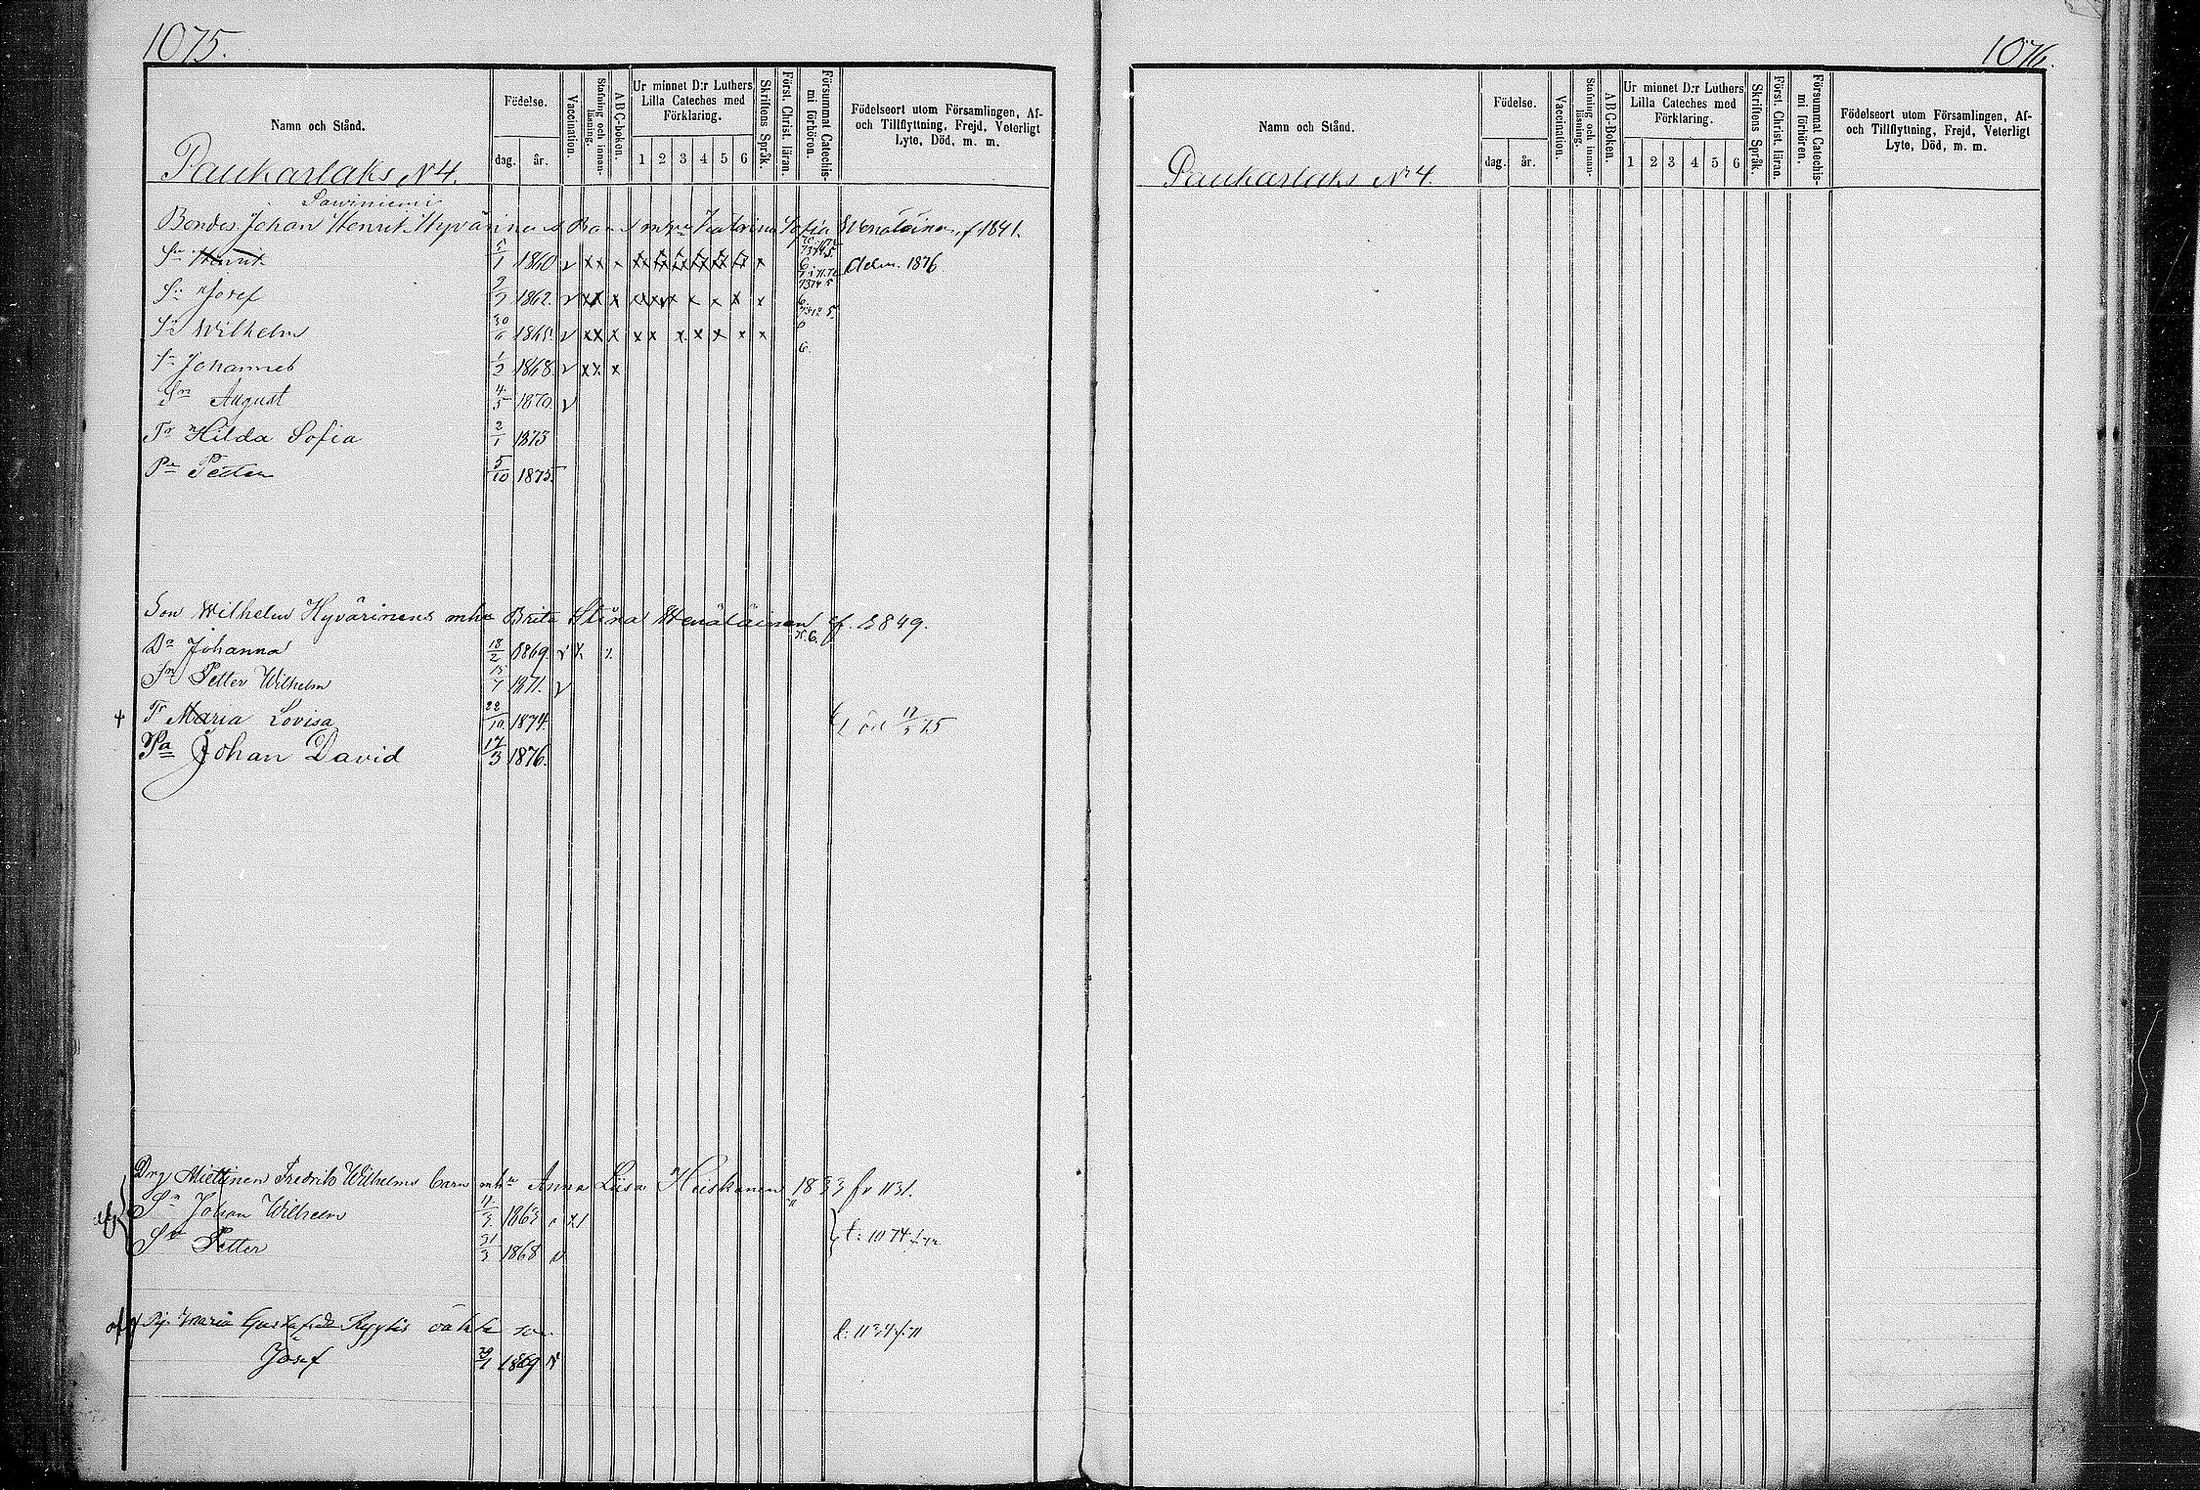 1075.
Namn och Stånd.
Födelse.
dag.
år.
Vaccination.
Stafning och innan-läsning.
ABC-boken.
Ur minnet D:r Luthers Lilla Cateches med Förklaring.
1 2 3 4 5 6
Skriftens Språk.
Först. Christ. läran.
Försummat Catechis-mi förhören.
Födelseort utom Församlingen, Af- och Tillflyttning, Frejd, Veterligt Lyte, Död, m. m.
Paukarlaks N 4.
Sawiniemi
Bondes Johan Henrik Hyvärinens Barn m hu Katrina Sofia Wenäläinen f. 1841.
Sn Henrik 5/1 1860 v Adm. 1876
Sn Josef 9/7 1862. v
Sn Wilhelm 30/6 1865. v
Sn Johannes 1/2 1868. v
Sn August 4/5 1870. v
Tr Hilda Sofia 2/1 1873
Pn Petter 5/10 1875.
Son Wilhelm Hyvärinens mhu Brita Stina Wenäläinen f. 1849.
Dr Johanna 18/2 1869. v
Sn Petter Wilhelm 15/7 1871. v
+ Tr Maria Lovisa 22/10 1874. Död 17/5 75
Pa Johan David 17/3 1876.
Drg Miettinen Fredrik Wilhelms barn mhu Anna Lisa Heiskanen 1833 fr 1131.
Sn Johan Wilhelm 11/3 1863
Sn Petter 31/3 1868 v
t: 1074
Pig Maria Gustafsdr Ryytis oäkta son t: 1134 f. 71
Josef 29/1 1869 v
1076.
Namn och Stånd.
Födelse.
dag.
år.
Vaccination.
Stafning och innan-läsning.
ABC-Boken.
Ur minnet D:r Luthers Lilla Cateches med Förklaring.
1 2 3 4 5 6
Skriftens Språk.
Först. Christ. läran.
Försummat Catechis-mi förhören.
Födelseort utom Församlingen, Af- och Tillflyttning, Frejd, Veterligt Lyte, Död, m. m.
Paukarlaks Nr 4.